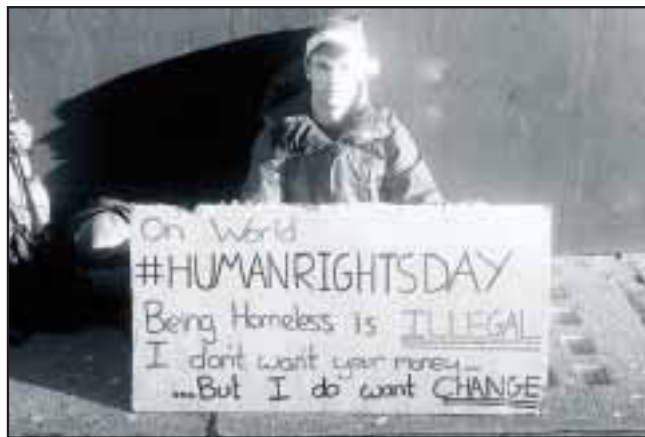 On World
#HUMANRIGHTSDAY
Being Homeless is ILLEGAL
I don't want your money...
...But I do want CHANGE